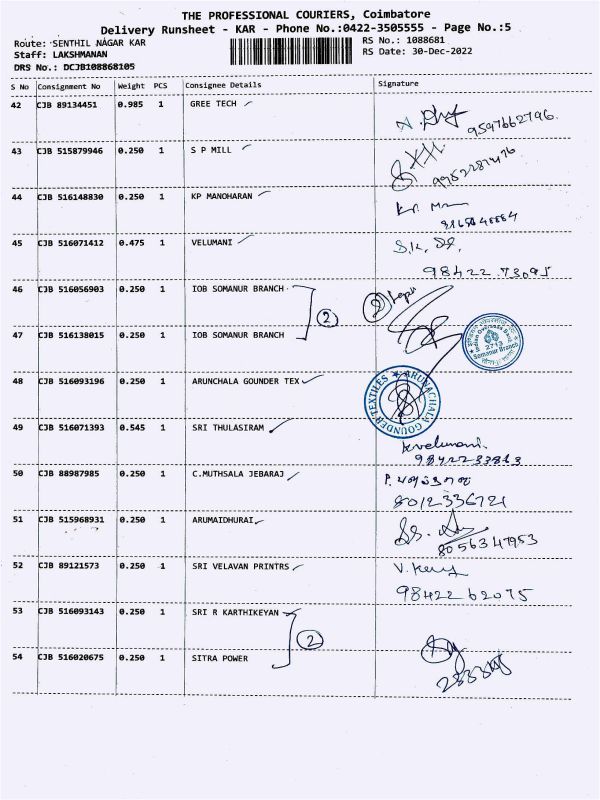 THE PROFESSIONAL COURIERS, Coimbatore
Delivery Runsheet - KAR - Phone No.:0422-3505555 - Page No.:5
Route: SENTHIL NAGAR KAR
Staff: LAKSHMANAN
DRS No.: DCJB108868105
RS No.: 1088681
RS Date: 30-Dec-2022
S No Consignment No Weight PCS Consignee Details Signature
42 CJB 89134451 0.985 1 GREE TECH
9597662796
43 CJB 515879946 0.250 1 S P MILL
44 CJB 516148830 0.250 1 KP MANOHARAN
45 CJB 516071412 0.475 1 VELUMANI
98422 73095
46 CJB 516056903 0.250 1 IOB SOMANUR BRANCH
2 2
Indian Overseas Bank
2713
Somanur Branch
47 CJB 516138015 0.250 1 IOB SOMANUR BRANCH
48 CJB 516093196 0.250 1 ARUNCHALA GOUNDER TEX
ARUNACHALA GOUNDER TEXTILES
49 CJB 516071393 0.545 1 SRI THULASIRAM
kvelumani
9842233813
50 CJB 88987985 0.250 1 C.MUTHSALA JEBARAJ
8012336721
51 CJB 515968931 0.250 1 ARUMAIDHURAI
8056347953
52 CJB 89121573 0.250 1 SRI VELAVAN PRINTRS
98422 62075
53 CJB 516093143 0.250 1 SRI R KARTHIKEYAN
2
54 CJB 516020675 0.250 1 SITRA POWER